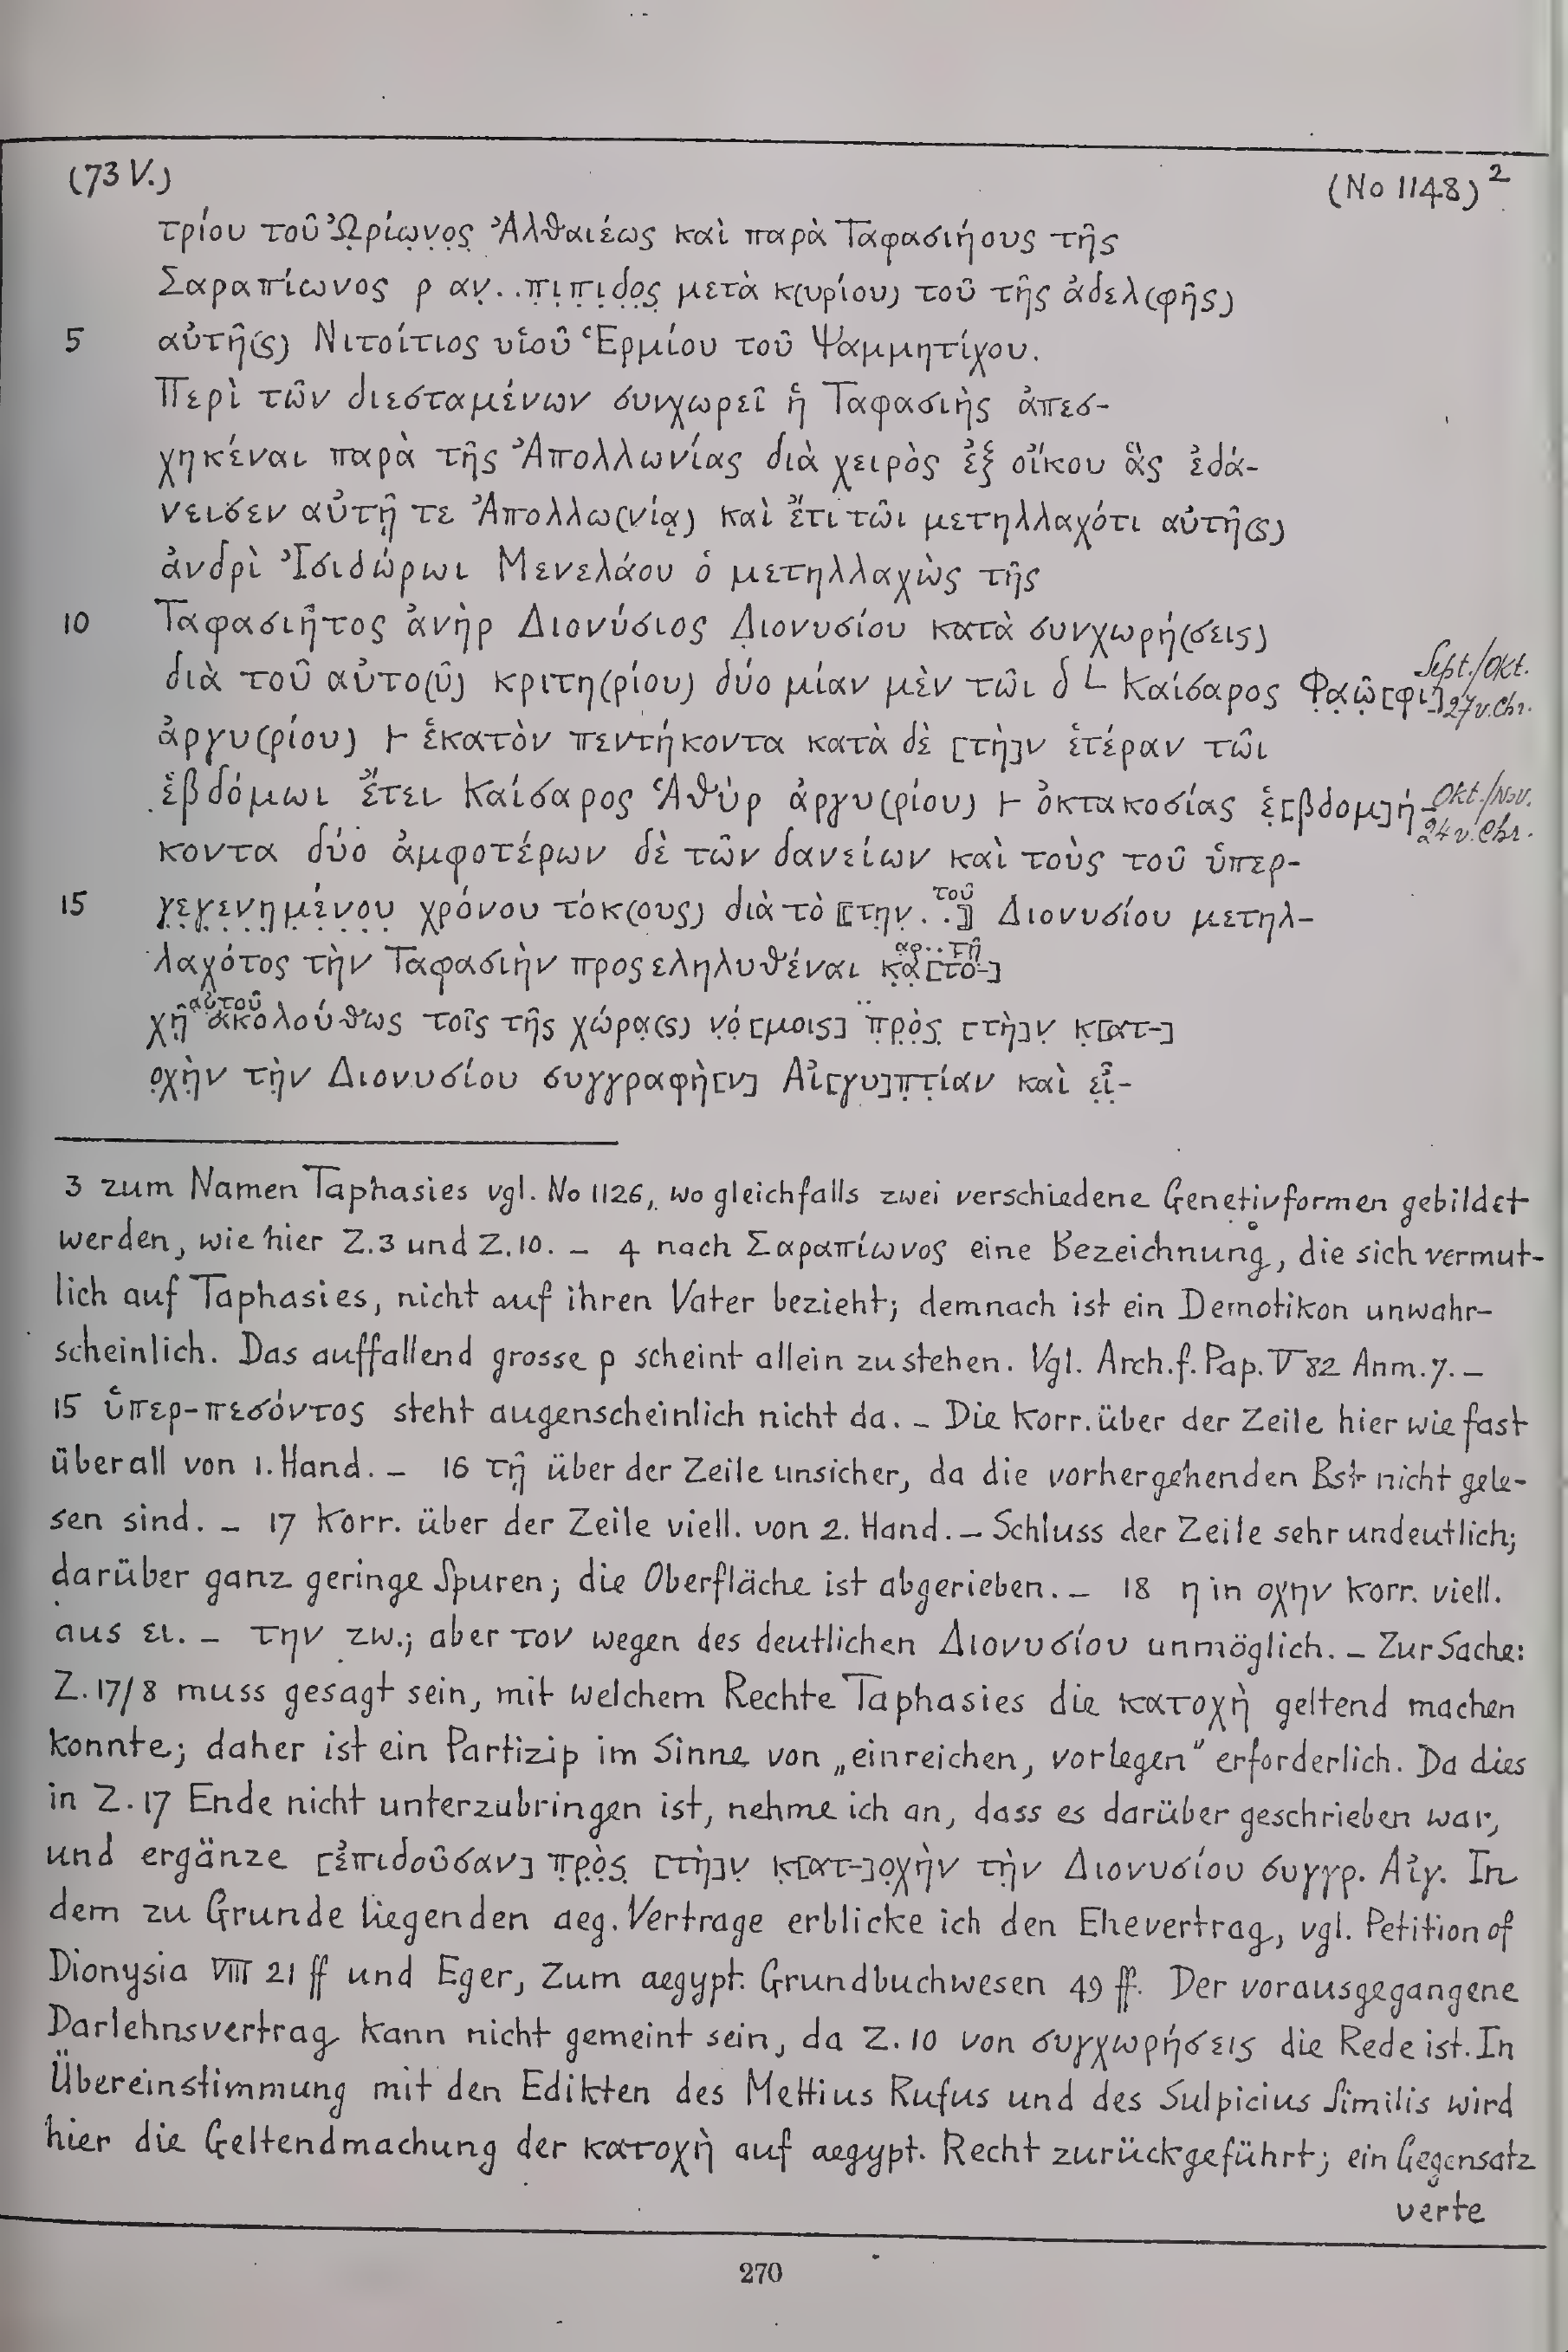 (73 V.) (No 1148)²
τρίου τοῦ Ὠρίωνος Ἀλθαιέως καὶ παρὰ Ταφασιήους τῆς
Σαραπίωνος ρ αν..πιπιδος μετὰ κ(υρίου) τοῦ τῆς ἀδελ(φῆς)
5 αὐτῆ(ς) Νιτοίτιος υἱοῦ Ἑρμίου τοῦ Ψαμμητίχου.
Περὶ τῶν διεσταμένων συνχωρεῖ ἡ Ταφασιὴς ἀπεσ-
χηκέναι παρὰ τῆς Ἀπολλωνίας διὰ χειρὸς ἐξ οἴκου ἃς ἐδά-
νεισεν αὐτῇ τε Ἀπολλω(νίᾳ) καὶ ἔτι τῶι μετηλλαχότι αὐτῆ(ς)
ἀνδρὶ Ἰσιδώρωι Μενελάου ὁ μετηλλαχὼς τῆς
10 Ταφασιῆτος ἀνὴρ Διονύσιος Διονυσίου κατὰ συνχωρή(σεις)
διὰ τοῦ αὐτο(ῦ) κριτη(ρίου) δύο μίαν μὲν τῶι δ L Καίσαρος Φαῶ[φι] Sept./Okt. 27 v. Chr.
ἀργυ(ρίου) ⊢ ἑκατὸν πεντήκοντα κατὰ δὲ [τὴ]ν ἑτέραν τῶι
ἑβδόμωι ἔτει Καίσαρος Ἁθὺρ ἀργυ(ρίου) ⊢ ὀκτακοσίας ἑ[βδομ]ή- Okt./Nov. 24 v. Chr.
κοντα δύο ἀμφοτέρων δὲ τῶν δανείων καὶ τοὺς τοῦ ὑπερ-
15 γεγενημένου χρόνου τόκ(ους) διὰ τὸ ⟦την..⟧ τοῦ Διονυσίου μετηλ-
λαχότος τὴν Ταφασιὴν προςεληλυθέναι αρ..τῇ κα[το-]
χῇ αὐτοῦ ἀκολούθως τοῖς τῆς χώρα(ς) νό[μοις] πρὸς [τὴ]ν κ[ατ-]
οχὴν τὴν Διονυσίου συγγραφὴ[ν] Αἰ[γυ]πτίαν καὶ εἶ-
3 zum Namen Taphasies vgl. No 1126, wo gleichfalls zwei verschiedene Genetivformen gebildet
werden, wie hier Z.3 und Z.10. – 4 nach Σαραπίωνος eine Bezeichnung, die sich vermut-
lich auf Taphasies, nicht auf ihren Vater bezieht; demnach ist ein Demotikon unwahr-
scheinlich. Das auffallend grosse ρ scheint allein zu stehen. Vgl. Arch. f. Pap. V 82 Anm. 7. –
15 ὑπερ-πεσόντος steht augenscheinlich nicht da. – Die Korr. über der Zeile hier wie fast
überall von 1. Hand. – 16 τῇ über der Zeile unsicher, da die vorhergehenden Bst nicht gele-
sen sind. – 17 Korr. über der Zeile viell. von 2. Hand. – Schluss der Zeile sehr undeutlich;
darüber ganz geringe Spuren; die Oberfläche ist abgerieben. – 18 η in οχην korr. viell.
aus ει. – την zw.; aber τον wegen des deutlichen Διονυσίου unmöglich. – Zur Sache:
Z. 17/8 muss gesagt sein, mit welchem Rechte Taphasies die κατοχὴ geltend machen
konnte; daher ist ein Partizip im Sinne von „einreichen, vorlegen" erforderlich. Da dies
in Z. 17 Ende nicht unterzubringen ist, nehme ich an, dass es darüber geschrieben war,
und ergänze [ἐπιδοῦσαν] πρὸς [τὴ]ν κ[ατ-]οχὴν τὴν Διονυσίου συγγρ. Αἰγ. In
dem zu Grunde liegenden aeg. Vertrage erblicke ich den Ehevertrag, vgl. Petition of
Dionysia VIII 21 ff und Eger, Zum aegypt. Grundbuchwesen 49 ff. Der vorausgegangene
Darlehnsvertrag kann nicht gemeint sein, da Z. 10 von συγχωρήσεις die Rede ist. In
Übereinstimmung mit den Edikten des Mettius Rufus und des Sulpicius Similis wird
hier die Geltendmachung der κατοχὴ auf aegypt. Recht zurückgeführt; ein Gegensatz
verte
270